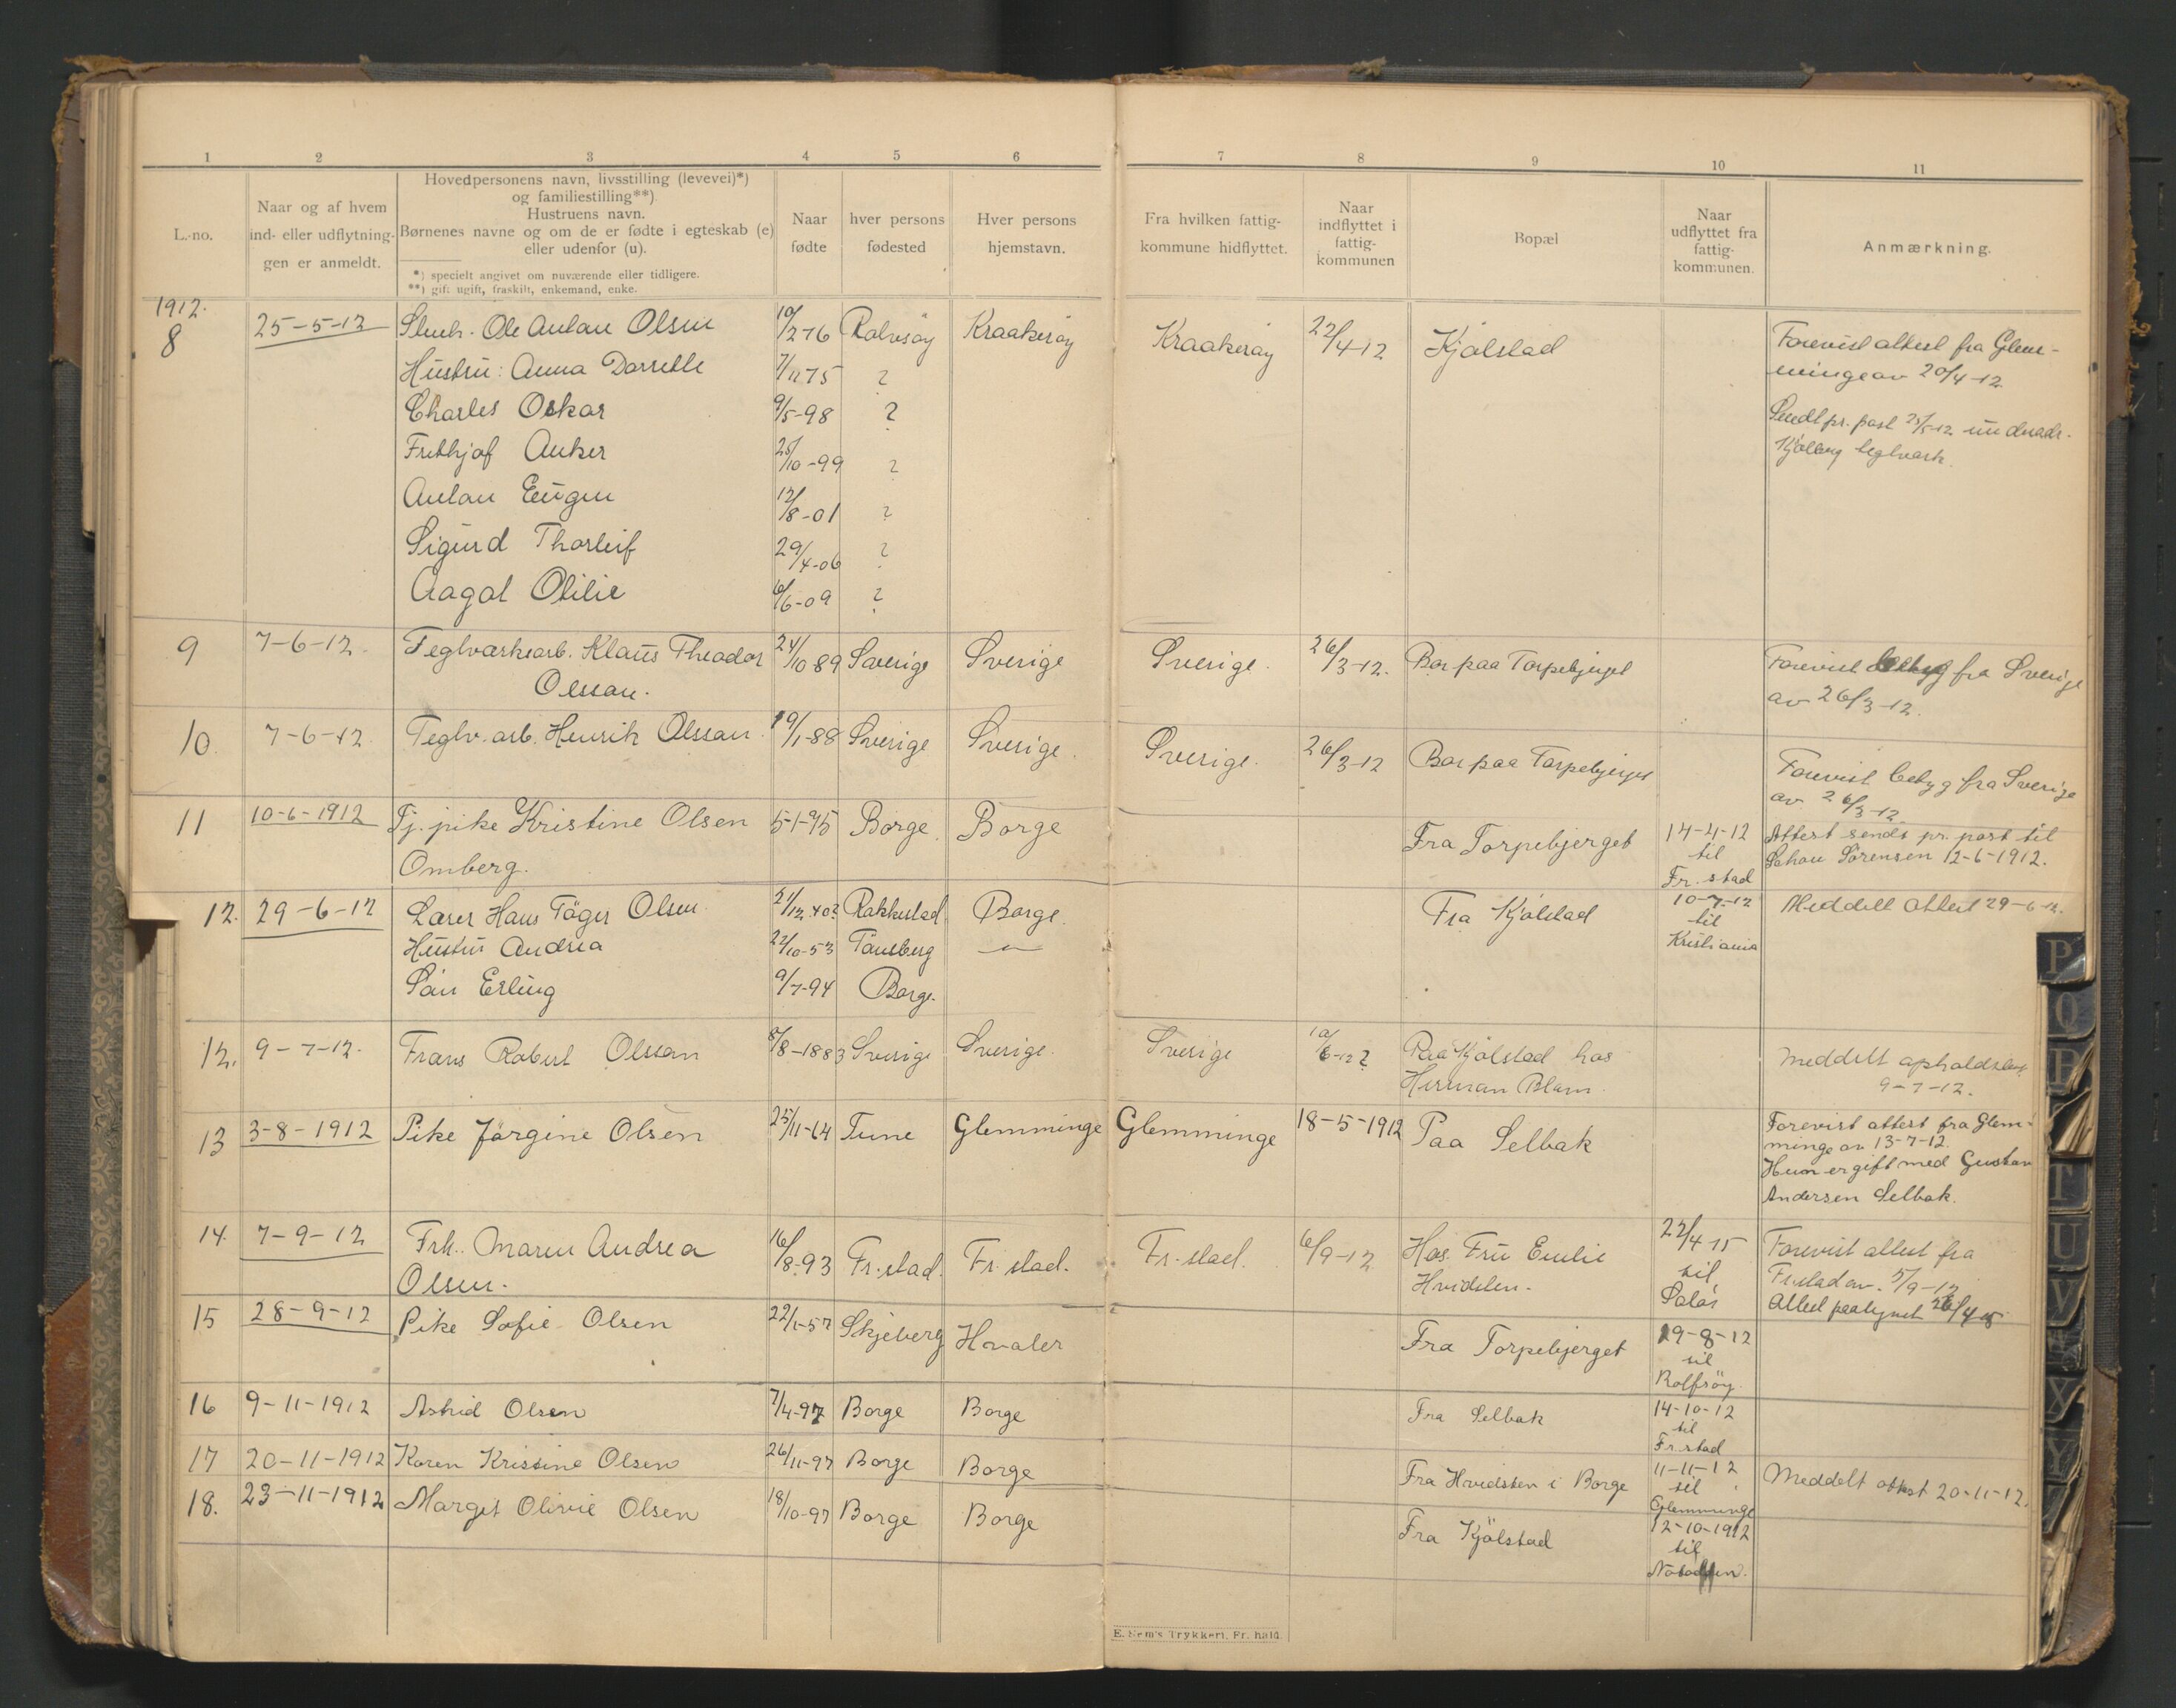 1 2 3 4 5 6 7 8 9 10 11
L.-no.
Naar og af hvem
ind- eller udflytnin-
gen er anmeldt.
Hovedpersonens navn, livsstilling (levevei)*)
og familiestilling**)
Hustruens navn.
Børnenes navne og om de er fødte i egteskab (e)
eller udenfor (u).
*) specielt angivet om nuværende eller tidligere.
**) gift ugift, fraskilt, enkemand, enke.
Naar
fødte
hver persons
fødested
Hver persons
hjemstavn.
Fra hvilken fattig-
kommune hidflyttet.
Naar
indflyttet i
fattig-
kommunen
Bopæl
Naar
udflyttet fra
fattig-
kommunen.
Anmærkning.
1912.
8 25-5-12 Ole Anlau Olsen 19/2-76 Rolvsöy Kraakeröy Kraakeröy 22/4-12 Kjölstad Forevist attest fra Glem-
minge av 20/4-12
Hustru: Anna Dorrethe 7/11 75 ?
Charles Oskar 9/5-98 ?
Sendt pr. post 25/5-12
Kjölberg teglverk.
Frithjof Anker 25/10-99 ?
Anlau Eugen 12/8-01 ?
Sigurd Thorleif 29/4-06 ?
Aagot Otilie 6/6-09 ?
9 7-6-12. Teglverksarb. Klaus Theodor 24/10 89 Sverige Sverige Sverige. 26/3-12. Bor paa Torpebjerget Forevist fra Sverige
Olsson. av 26/3-12.
10. 7-6-12 Teglv. arb. Henrik Olsson. 19/1-88 Sverige Sverige. Sverige. 26/3-12 Bor paa Torpebjerget Forevist betyg fra Sverige
av 26/3-12.
11 10-6-1912 Tj. pike Kristine Olsen 5-1-95 Borge. Borge Fra Torpebjerget 14-4-12 Attest sendt pr. post til
Omberg. til Johan Sörensen 12-6-1912.
Fr. stad
12. 29-6-12 Lærer Hans Olsen 21/12.40? Rakkestad Borge. Fra Kjölstad 10-7-12 Meddelt attest 29-6-12.
til
Hustru Andrea 22/10-53 Tönsberg Kristiania
Sön Erling 9/7-94 Borge.
12. 9-7-12. Frans Robert Olsson 8/8-1883 Sverige Sverige. Sverige 10/6-12? Paa Kjölstad hos meddelt
Herman Blom. 9-7-12.
13 3-8-1912 Pike Jörgine Olsen 25/11-64 Tune Glemminge Glemminge 18-5-1912 Paa Selbak Forevist attest fra Glem-
minge av 13-7-12.
Hun er gift med Gustav
Andersen Selbak.
14. 7-9-12 Frk. Maren Andrea 16/8-93 Fr.stad. Fr. stad. Fr. stad. 6/9-12 Hos Fru Emilie 22/4-15 Forevist attest fra
Olsen. Hvidsten. til Fr.stad av. 5/9-12
Solör Attest paategnet 26/4 15
15 28-9-12 Pike Sofie Olsen 22/1-57 Skjeberg Hvaler Fra Torpebjerget 29-8-12
til
Rolfsöy.
16 9-11-1912 Astrid Olsen 7/4-97 Borge Borge Fra Selbak 14-10-12
til
Fr.stad
17 20-11-1912 Karen Kristine Olsen 26/11-97 Borge Borge Fra Hvidsten i Borge 11-11-12 Meddelt attest 20-11-12.
til
Glemminge
18. 23-11-1912 Margit Olivie Olsen 18/10-97 Borge Borge Fra Kjölstad 12-10-1912
til
Notodden.
E. Sem's Trykkeri, Fr. hald.
P
O
R
T
U
V
Y